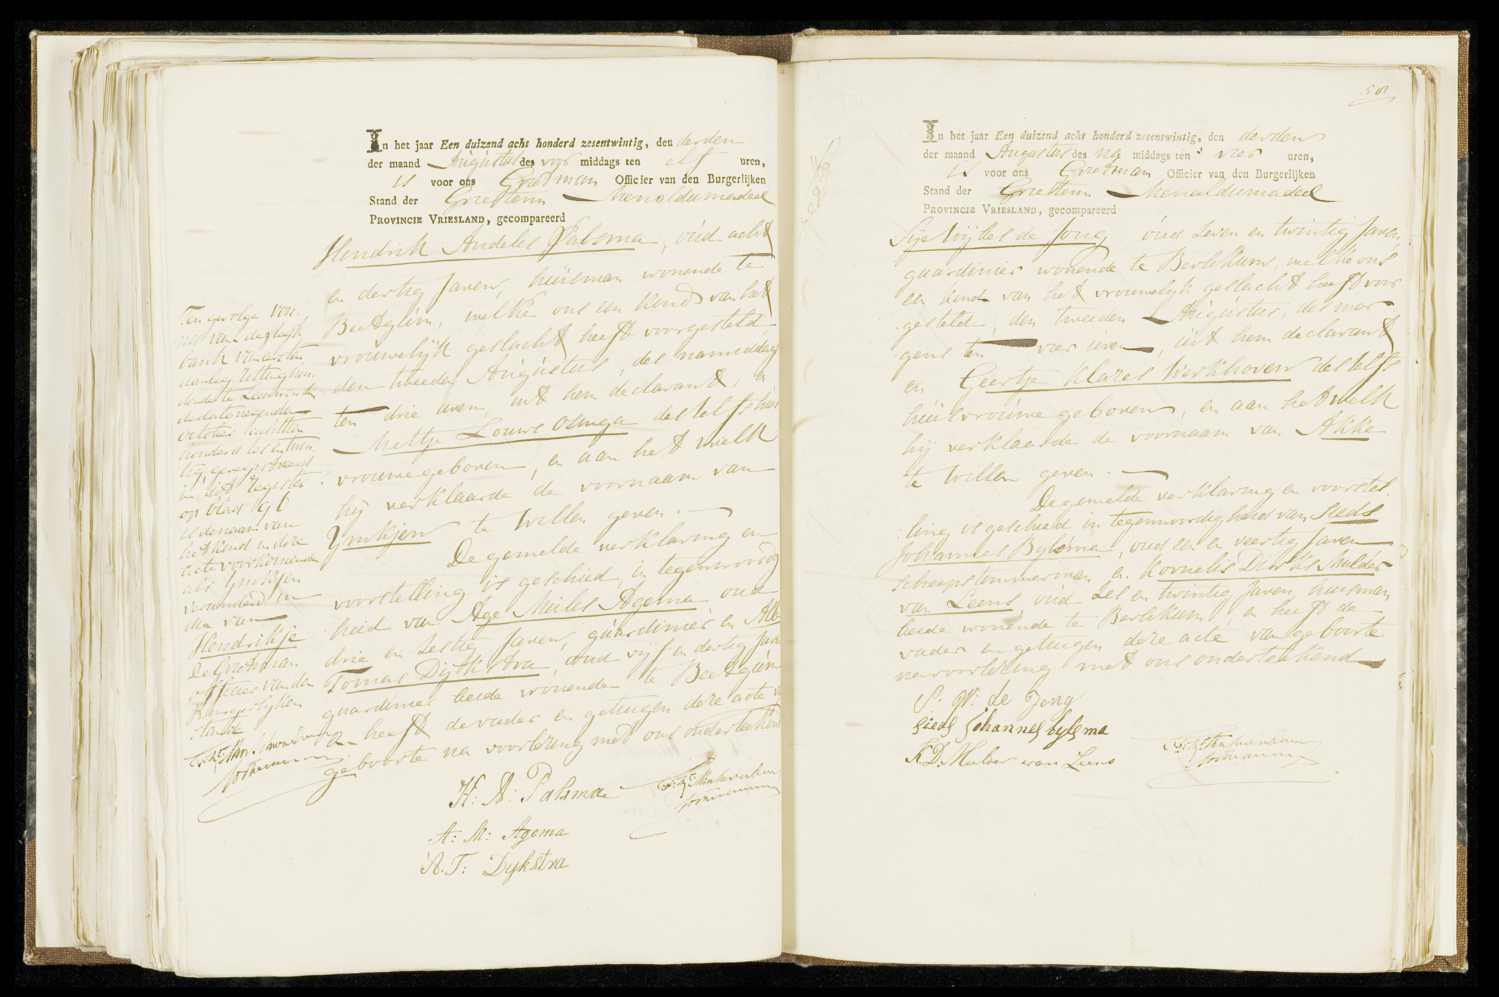 In het jaar Een duizend acht honderd zesentwintig, den derden
der maand Augustus des voor middags ten elf uren,
is voor ons Grietman Officier van den Burgerlijken
Stand der Grietenij Menaldumadeel
PROVINCIE VRIESLAND, gecompareerd
Hendrik Andeles Palsma, oud acht
en dertig Jaren, huisman wonende te
Beetgum, welke ons een kind van het
vrouwelijk geslacht heeft voorgesteld
den tweeden Augustus, des namiddags
ten drie uren, uit hem declarant, en
Meltje Louws Osinga deszelfs huis
vrouwe geboren, en aan het welk
hij verklaarde de voornaam van
Ymkjen te willen geven.
De gemelde verklaring en
voorstelling is geschied, in tegenwoordig
heid van Age Meiles Agema oud
drie en zestig Jaren, guardinier en
Tomas Dijkstra, oud vijf en dertig Jaren
guardinier beide wonende te Beetgum
en heeft de vader en getuigen deze acte van
geboorte na voorlezing met ons onderteekend
H: A: Palsma
A: M: Agema
A. T: Dykstra
Ten gevolge
van
oktober
honderd zes en twin
tig geregistreerd
in het register
op
is de naam van
het kind in deze
acte voorkomende
als Ymkjen
veranderd in
die van
Hendrikje
De Grietman
officier van den
Burgerlijken
stand
In het jaar Een duizend acht honderd zesentwintig, den derden
der maand Augustus des na middags ten vier uren,
is voor ons Grietman Officier van den Burgerlijken
Stand der Grietenij Menaldumadeel
PROVINCIE VRIESLAND, gecompareerd
Sije Wijtzes de Jong oud zeven en twintig Jaren,
guardinier wonende te Berlikum, welke ons
een kind van het vrouwelijk geslacht heeft voor
gesteld, den tweeden Augustus, des mor
gens ten vier uren, uit hem declarant
en Geertje Klazes Werkhoven deszelfs
huisvrouwe geboren, en aan het welk
hij verklaarde de voornaam van Akke
te willen geven.
De gemelde verklaring en voorstel
ling is geschied in tegenwoordigheid van Sieds
Johannes Bylsma, oud een en veertig Jaren
scheepstimmerman en Kornelis Dirks Mulder
van Leens, oud zes en twintig Jaren, huisman
beide wonende te Berlikum, en heeft de
vader en getuigen deze acte van geboorte
na voorlezing met ons onderteekend
S. W. de Jong
Sieds Johannes bylsma
K. D. Mulder van Leens